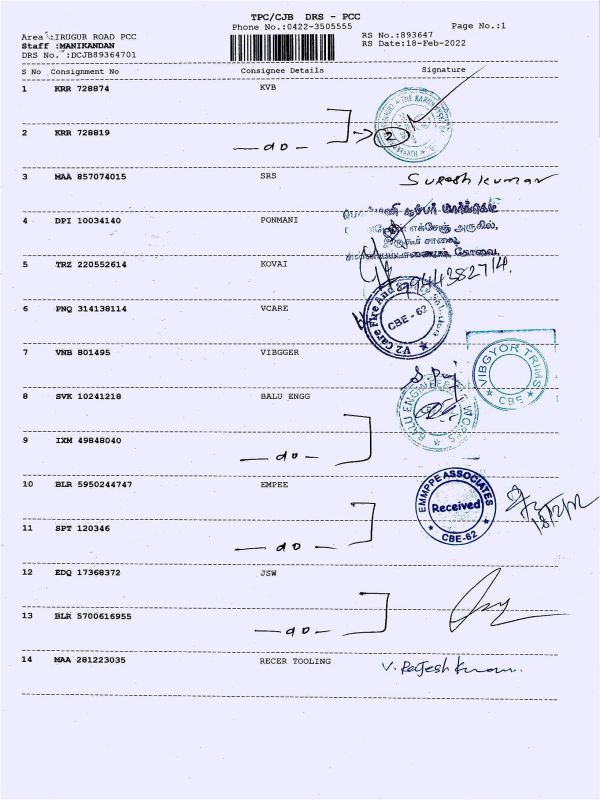 TPC/CJB DRS - PCC
Phone No.:0422-3505555
Page No.:1
Area :IRUGUR ROAD PCC
RS No.:893647
Staff :MANIKANDAN
RS Date:18-Feb-2022
DRS No. :DCJB89364701
S No Consignment No Consignee Details Signature
1 KRR 728874 KVB
2 KRR 728819 — do — 2
3 MAA 857074015 SRS Suresh kumar
4 DPI 10034140 PONMANI
எக்சேஞ் அருகில்,
சாலை,
கோவை.
5 TRZ 220552614 KOVAI
9944382714.
6 PNQ 314138114 VCARE
V2 Care Fire And
CBE - 62
7 VNB 801495 VIBGGER
VIBGYOR TRIMS
CBE
8 SVK 10241218 BALU ENGG
BALU ENGINEERING WORKS
9 IXM 49848040 — do —
10 BLR 5950244747 EMPEE
EMMPPE ASSOCIATES
Received
CBE-62
18/2/22
11 SPT 120346 — do —
12 EDQ 17368372 JSW
13 BLR 5700616955 — do —
14 MAA 281223035 RECER TOOLING V. Rajesh Kumar.